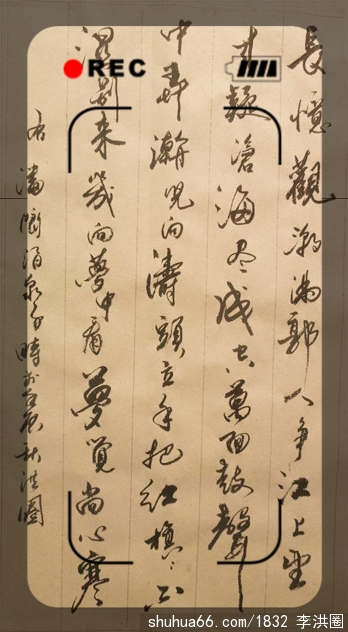 REC
長憶觀潮滿郭人爭江上望
来疑滄海尽成空萬面鼓聲
中弄潮児向濤頭立手把红旗〻不
濕別来幾向夢中看夢覺尚心寒
右潘閬酒泉子時於秋洪圈
shuhua66.com/1832 李洪圈